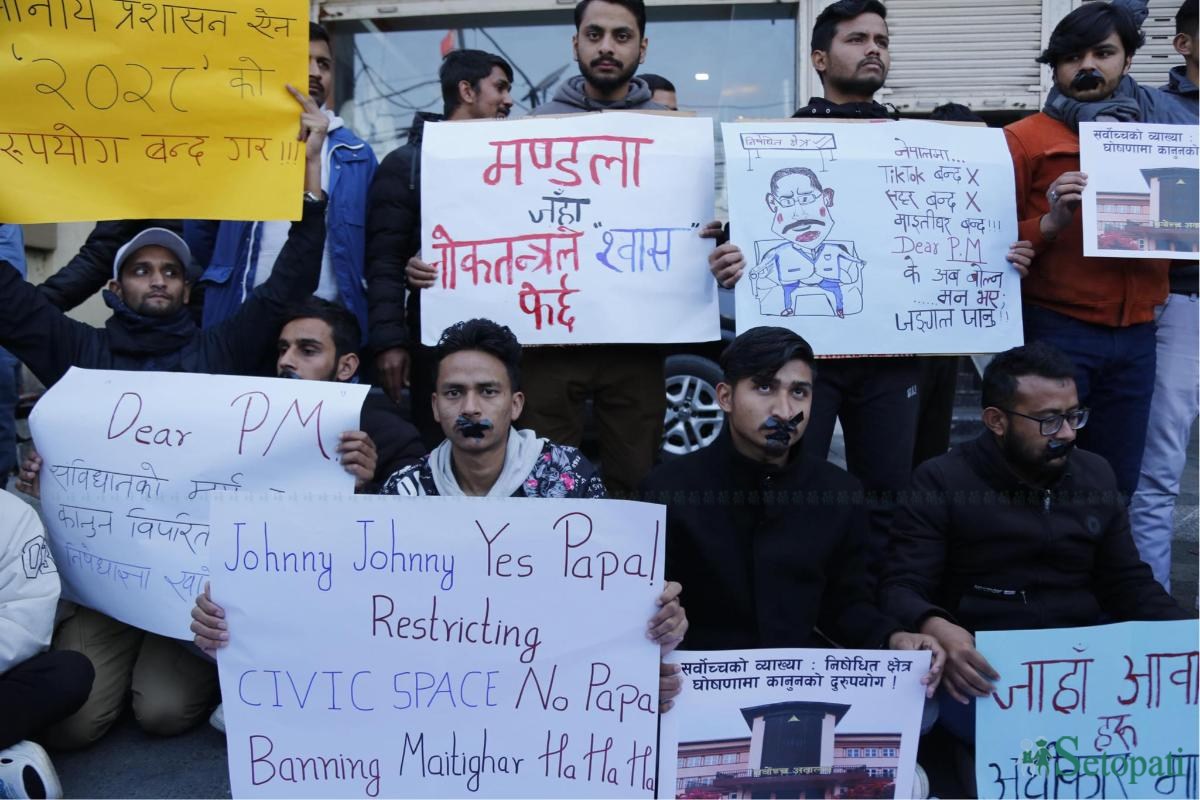 स्थानीय प्रशासन ऐन
'२०२८' को
दुरुपयोग बन्द गर !!!
मण्डला
जहाँ
लोकतन्त्रले "श्वास"
फेर्छ
निषेधित क्षेत्र
नेपालमा...
TikTok बन्द X
सहर बन्द X
माइतीघर बन्द!!!
Dear P.M
के अब बोल्न
......मन भए
जङ्गल जानु!!
सर्वोच्चको व्याख्या :
घोषणामा कानुनको
Dear PM
संविधानको मर्म
कानुन विपरित
निषेधाज्ञा
Johnny Johnny Yes Papa!
Restricting
CIVIC SPACE No Papa
Banning Maitighar Ha Ha Ha
सर्वोच्चको व्याख्या : निषेधित क्षेत्र
घोषणामा कानुनको दुरुपयोग !
सर्वोच्च अदालत
जाहाँ आवा
हरू
Setopati